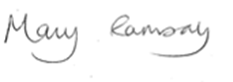 Mary Ramsay